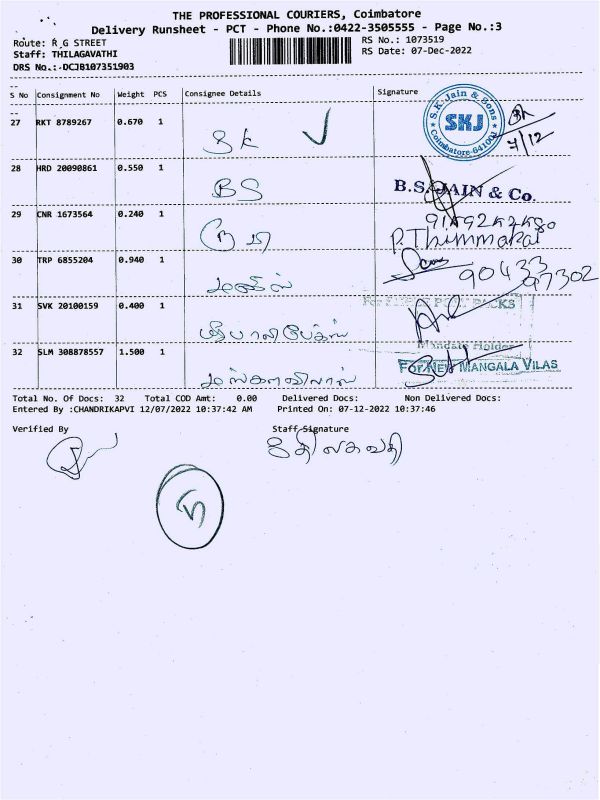 THE PROFESSIONAL COURIERS, Coimbatore
Delivery Runsheet - PCT - Phone No.:0422-3505555 - Page No.:3
Route: R G STREET
RS No.: 1073519
Staff: THILAGAVATHI
RS Date: 07-Dec-2022
DRS No.:-DCJB107351903
S No Consignment No Weight PCS Consignee Details Signature
27 RKT 8789267 0.670 1 SK
S.K. Jain & Sons
SKJ
Coimbatore-641001
7/12
28 HRD 20090861 0.550 1 BS
B.S. JAIN & Co.
29 CNR 1673564 0.240 1
P. Thimmakai
30 TRP 6855204 0.940 1
90433
97302
31 SVK 20100159 0.400 1
PACKS
Mandate Holder
32 SLM 308878557 1.500 1 மங்களாவிலாஸ்
For NEW MANGALA VILAS
Total No. Of Docs: 32 Total COD Amt: 0.00 Delivered Docs: Non Delivered Docs:
Entered By :CHANDRIKAPVI 12/07/2022 10:37:42 AM Printed On: 07-12-2022 10:37:46
Verified By Staff Signature
திலகவதி